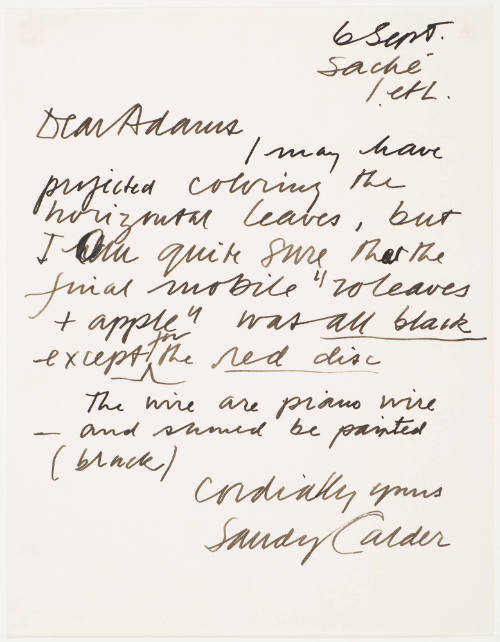 6 Sept.
Saché
I. et L.
Dear Adams
I may have
projected coloring the
horizontal leaves, but
I am quite sure that the
final mobile "20 leaves
+ apple" was all black
except for the red disc
The wire are piano wire
— and should be painted
(black)
Cordially yours
Sandy Calder